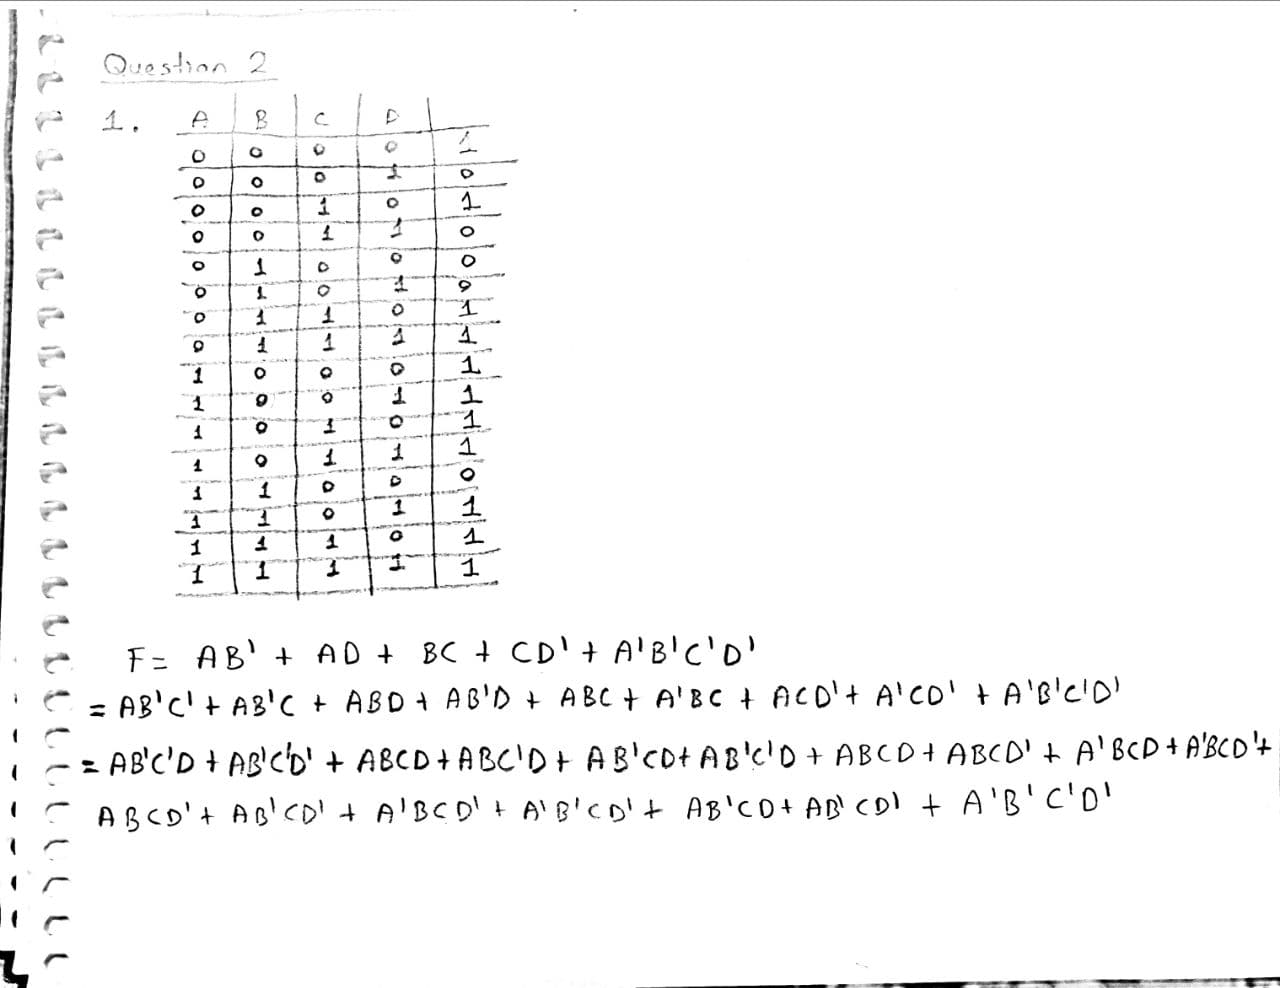 Question 2
1. A B C D
0 0 0 0 1
0 0 0 1 0
0 0 1 0 1
0 0 1 1 0
0 1 0 0 0
0 1 0 1 0
0 1 1 0 1
0 1 1 1 1
1 0 0 0 1
1 0 0 1 1
1 0 1 0 1
1 0 1 1 1
1 1 0 0 0
1 1 0 1 1
1 1 1 0 1
1 1 1 1 1
F= AB' + AD + BC + CD' + A'B'C'D'
= AB'C' + AB'C + ABD + AB'D + ABC + A'BC + ACD' + A'CD' + A'B'C'D'
= AB'C'D + AB'C'D' + ABCD + ABC'D + AB'CD + AB'C'D + ABCD + ABCD' + A'BCD + A'BCD' +
ABCD' + AB'CD' + A'BCD' + A'B'CD' + AB'CD + AB'CD' + A'B'C'D'